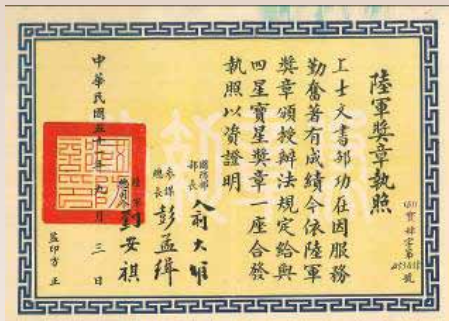 陸軍獎章執照
上士文書郭功在因服務
勤奮著有成績今依陸軍
獎章頒授辦法規定給與
四星寶星獎章一座合發
執照以資證明
國防部
部長俞大維
參謀
總長彭孟緝
陸軍
總司令劉安祺
中華民國五十年九月三日
監印方正